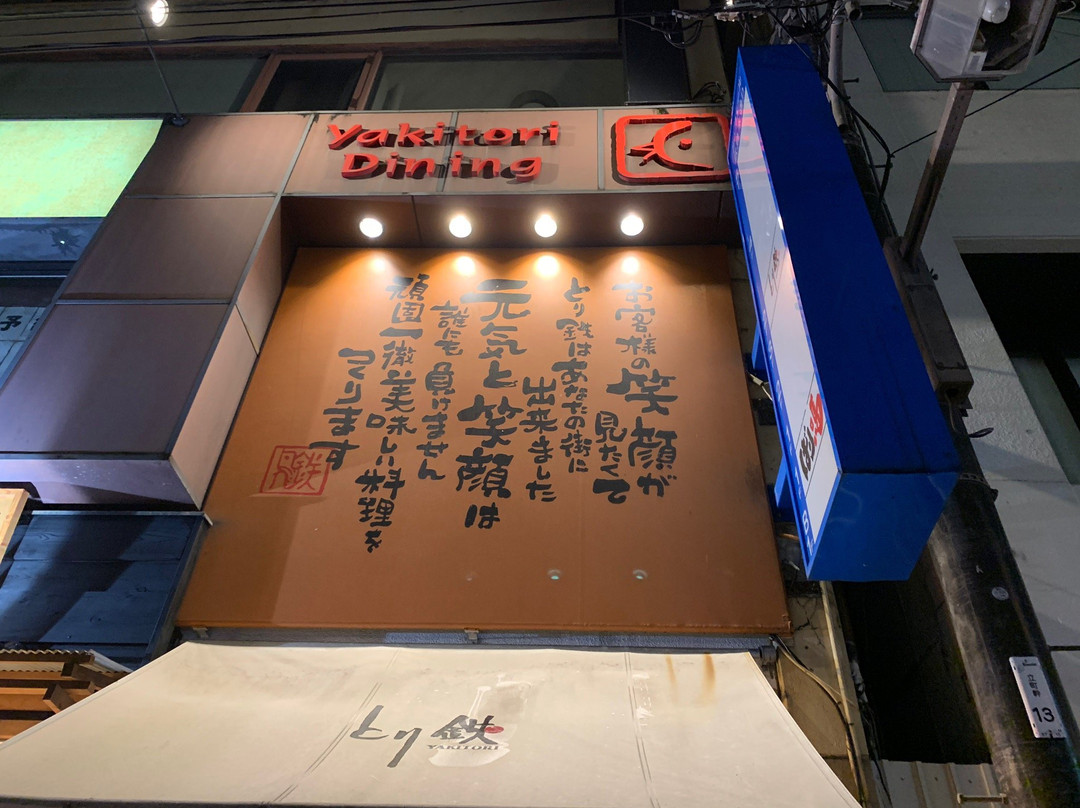 Yakitori
Dining
お客様の笑顔が
見たくて
とり鉄はあなたの街に
出来ました
元気と笑顔は
誰にも負けません
頑固一徹美味しい料理を
つくります
鉄
とり鉄
YAKITORI
予
13